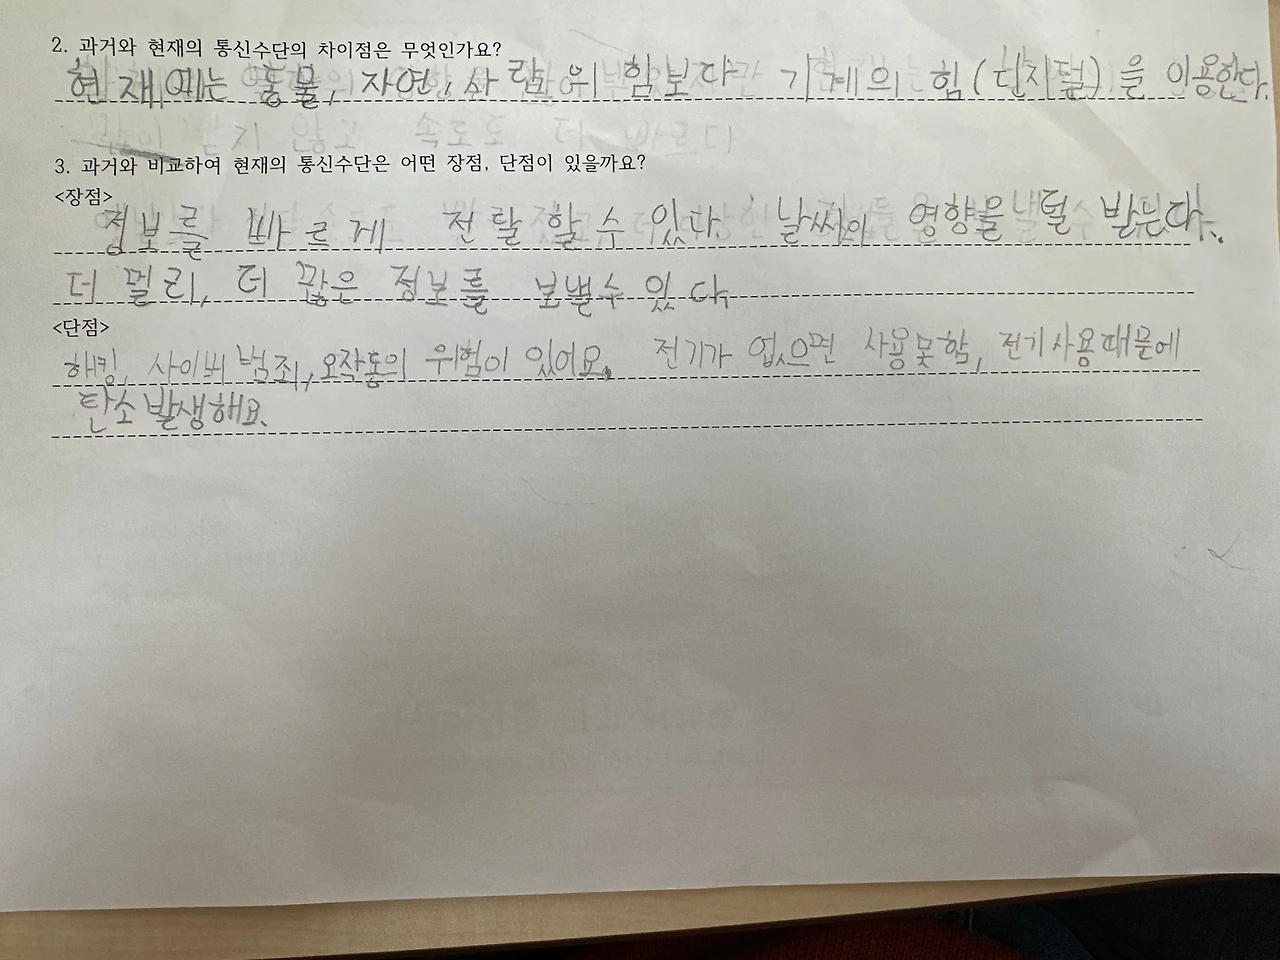 2. 과거와 현재의 통신수단의 차이점은 무엇인가요?
현재에는 동물, 자연, 사람위 힘보다 기계의 힘(딘지털)을 이용한다.
않고 속도도 더 빠르다
3. 과거와 비교하여 현재의 통신수단은 어떤 장점, 단점이 있을까요?
<장점>
정보를 빠르게 전달 할 수 있다. 날씨의 영향을 덜 받는다.
더 멀리, 더 많은 정보를 보낼수 있다
<단점>
해킹, 사이버 범죄, 오작동의 위험이 있어요. 전기가 없으면 사용못함, 전기사용때문에
탄소발생해요.